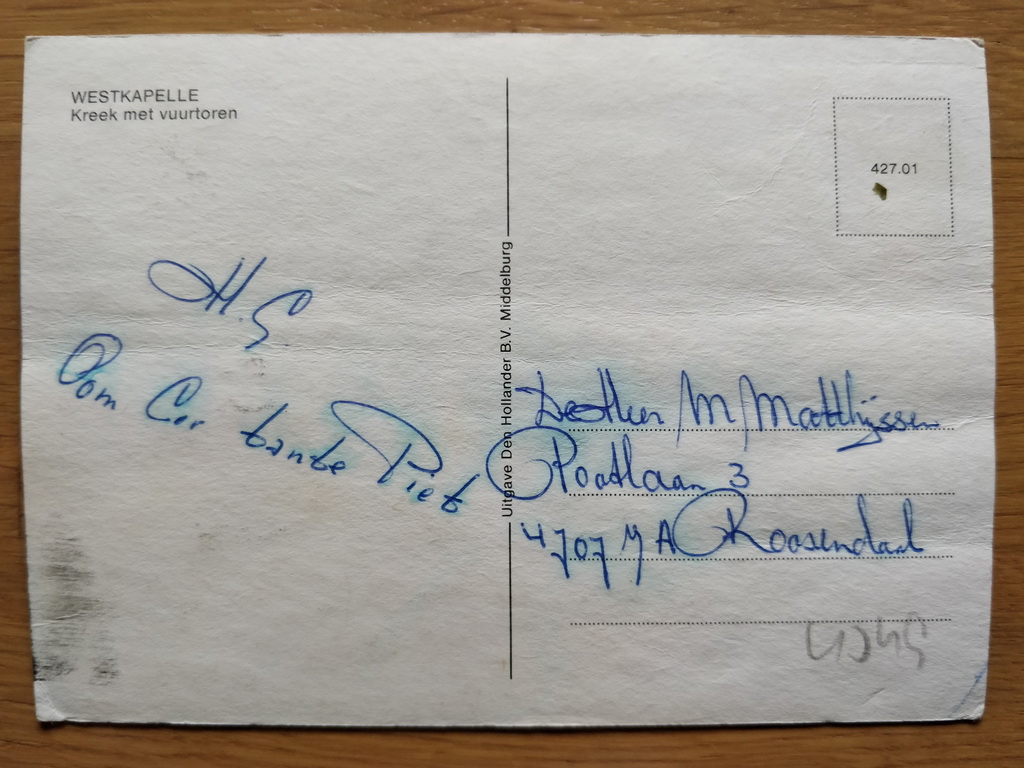 WESTKAPELLE
Kreek met vuurtoren
427.01
Uitgave Den Hollander B.V. Middelburg
H.G
Oom Cor tante Piet
M Matthijssen
3
4707 MA Roosendaal